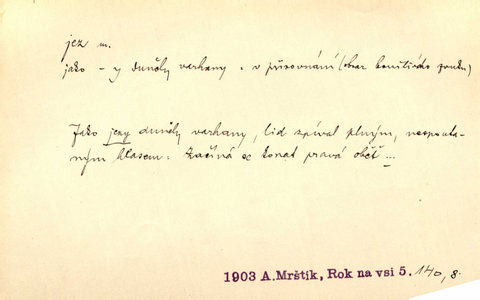 jez m.
jako – y duněly varhany : v přirovnání (obraz burácivého zvuku)
Jako jezy duněly varhany, lid zpíval plným, nespouta-
ným hlasem: Začíná se konat pravá oběť ...
1903 A.Mrštík, Rok na vsi 5. 140, 8.